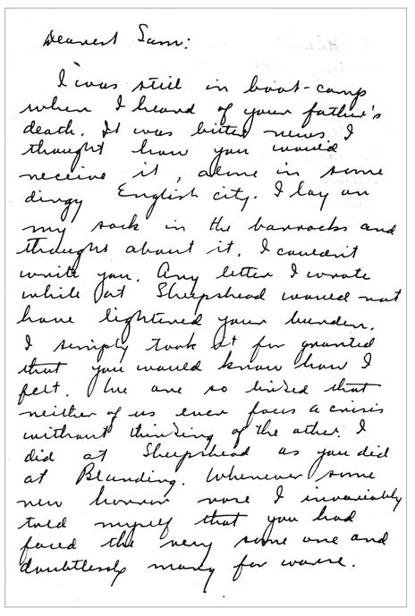 Dearest Sam:
I was still in boot-camp
when I heard of your father's
death. It was bitter news. I
thought how you would
receive it, alone in some
dingy English city. I lay on
my sack in the barracks and
thought about it. I couldn't
write you. Any letter I wrote
while at Sheepshead would not
have lightened your burden.
I simply took it for granted
that you would know how I
felt. We are so linked that
neither of us ever faces a crisis
without thinking of the other. I
did at Sheepshead as you did
at Blanding. Whenever some
new horror rose I invariably
told myself that you had
faced the very same one and
doubtlessly many far worse.